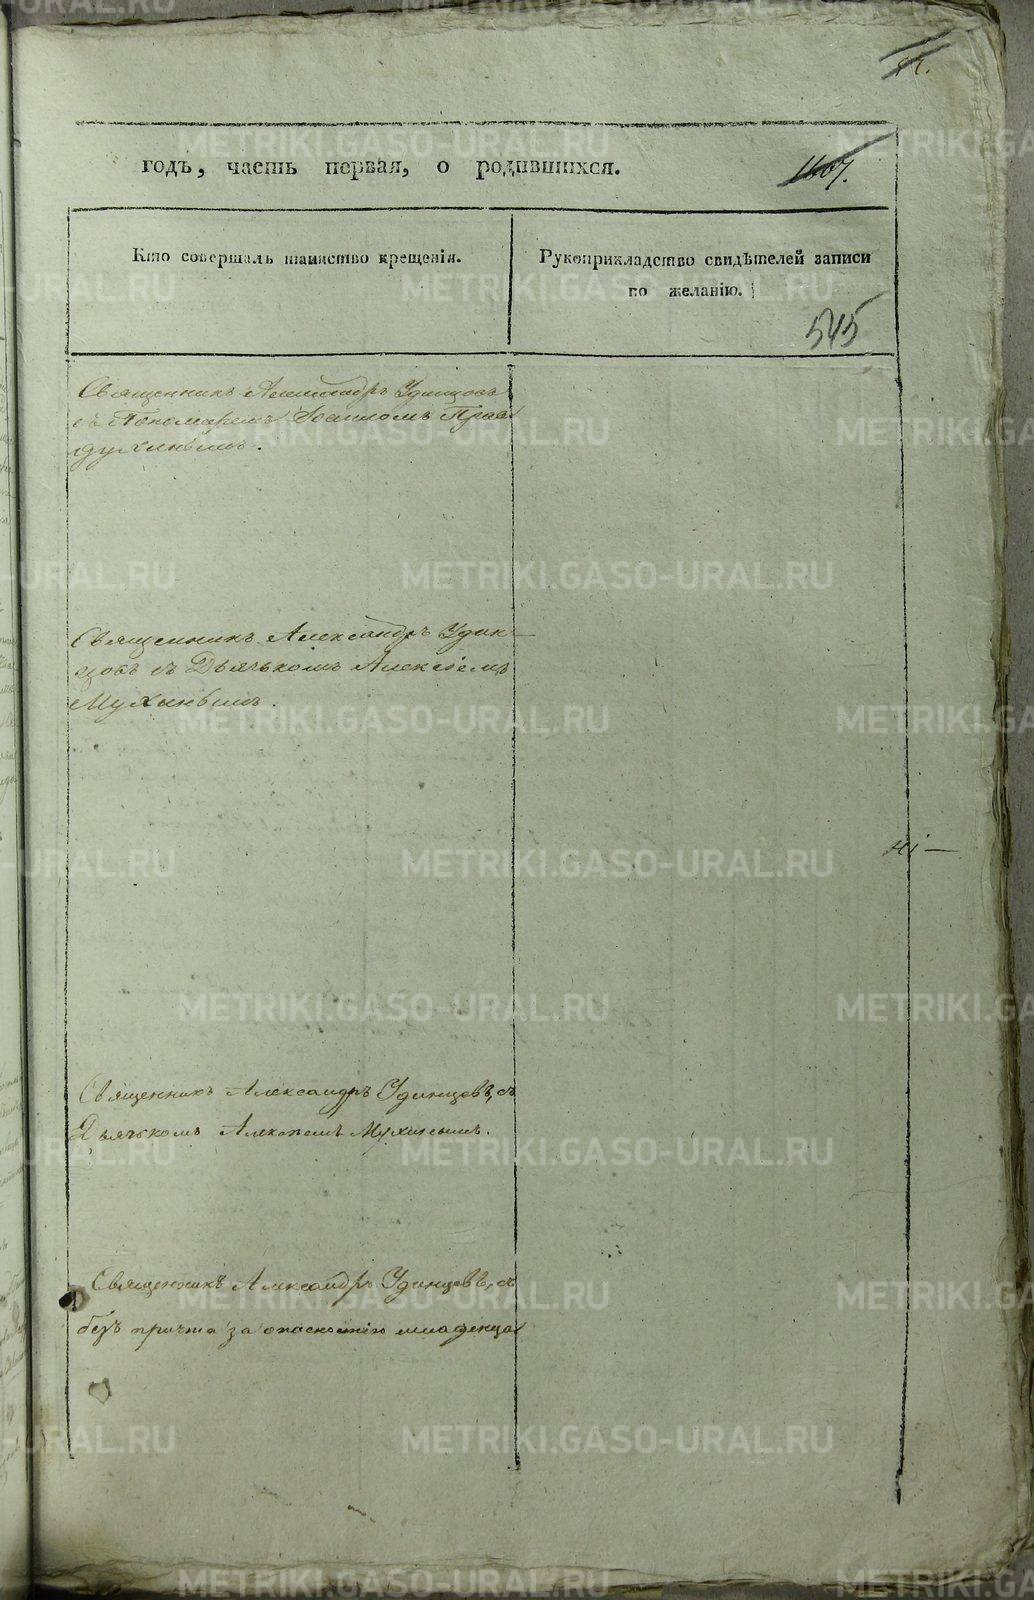 годъ, часть первая, о родившихся.
Кто совершалъ таинство крещенія.
Рукоприкладство свидѣтелей записи
по желанію.
545
Священникъ Александръ Удинцовъ
съ Пономаремъ Іоанномъ Прав
духинымъ.
Священникъ Александръ Удин-
цовъ съ Дьячькомъ Алексіемъ
Мухинымъ.
Священникъ Александръ Удинцевъ, съ
Дьячькомъ Алексіемъ Мухинымъ.
Священникъ Александръ Удинцевъ,
безъ причта за опасностію младенца
METRIKI.GASO-URAL.RU